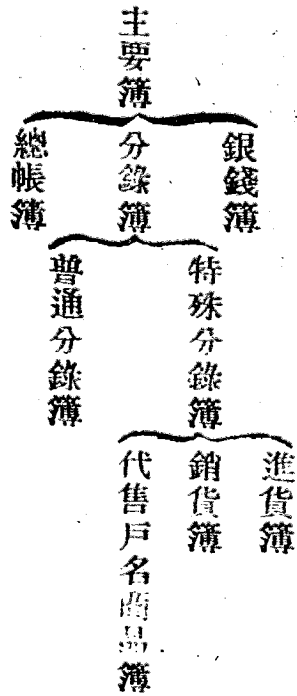 主要簿
銀錢簿
分錄簿
總帳簿
特殊分錄簿
普通分錄簿
進貨簿
銷貨簿
代售戶名商品簿